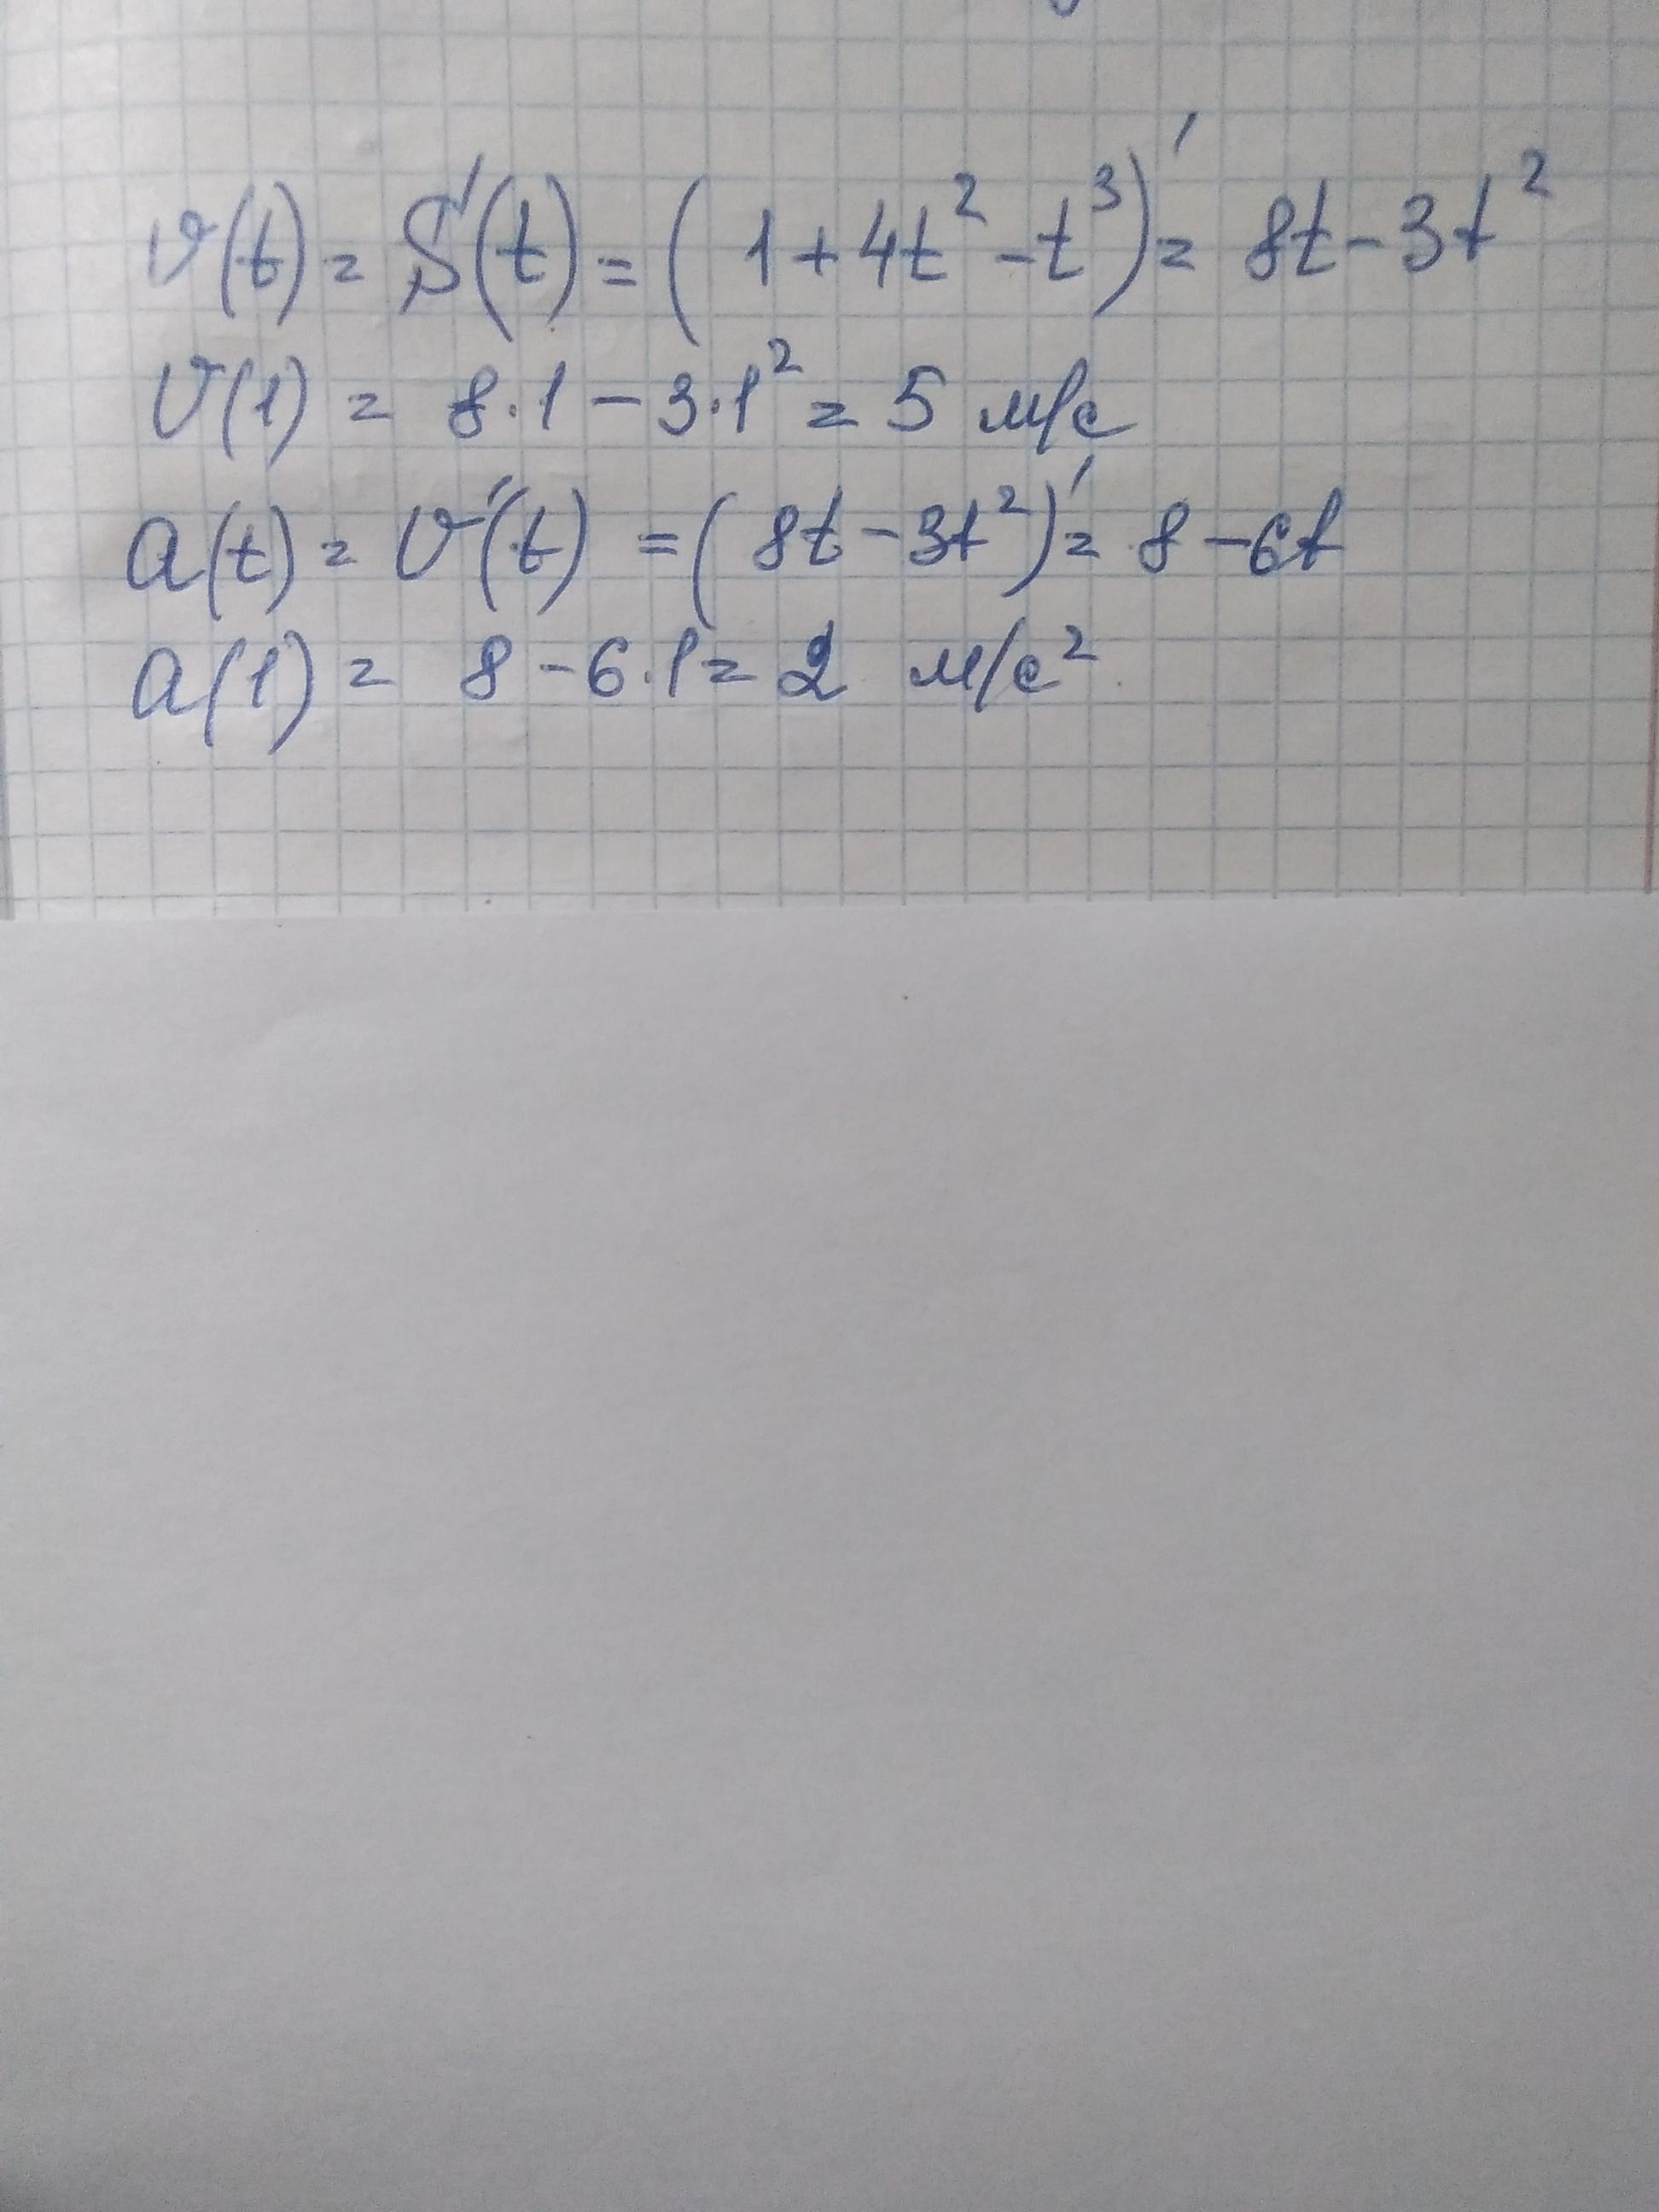 v(t) = S'(t) = (1 + 4t² - t³)' = 8t - 3t²
v(1) = 8·1 - 3·1² = 5 м/с
a(t) = v'(t) = (8t - 3t²)' = 8 - 6t
a(1) = 8 - 6·1 = 2 м/с²